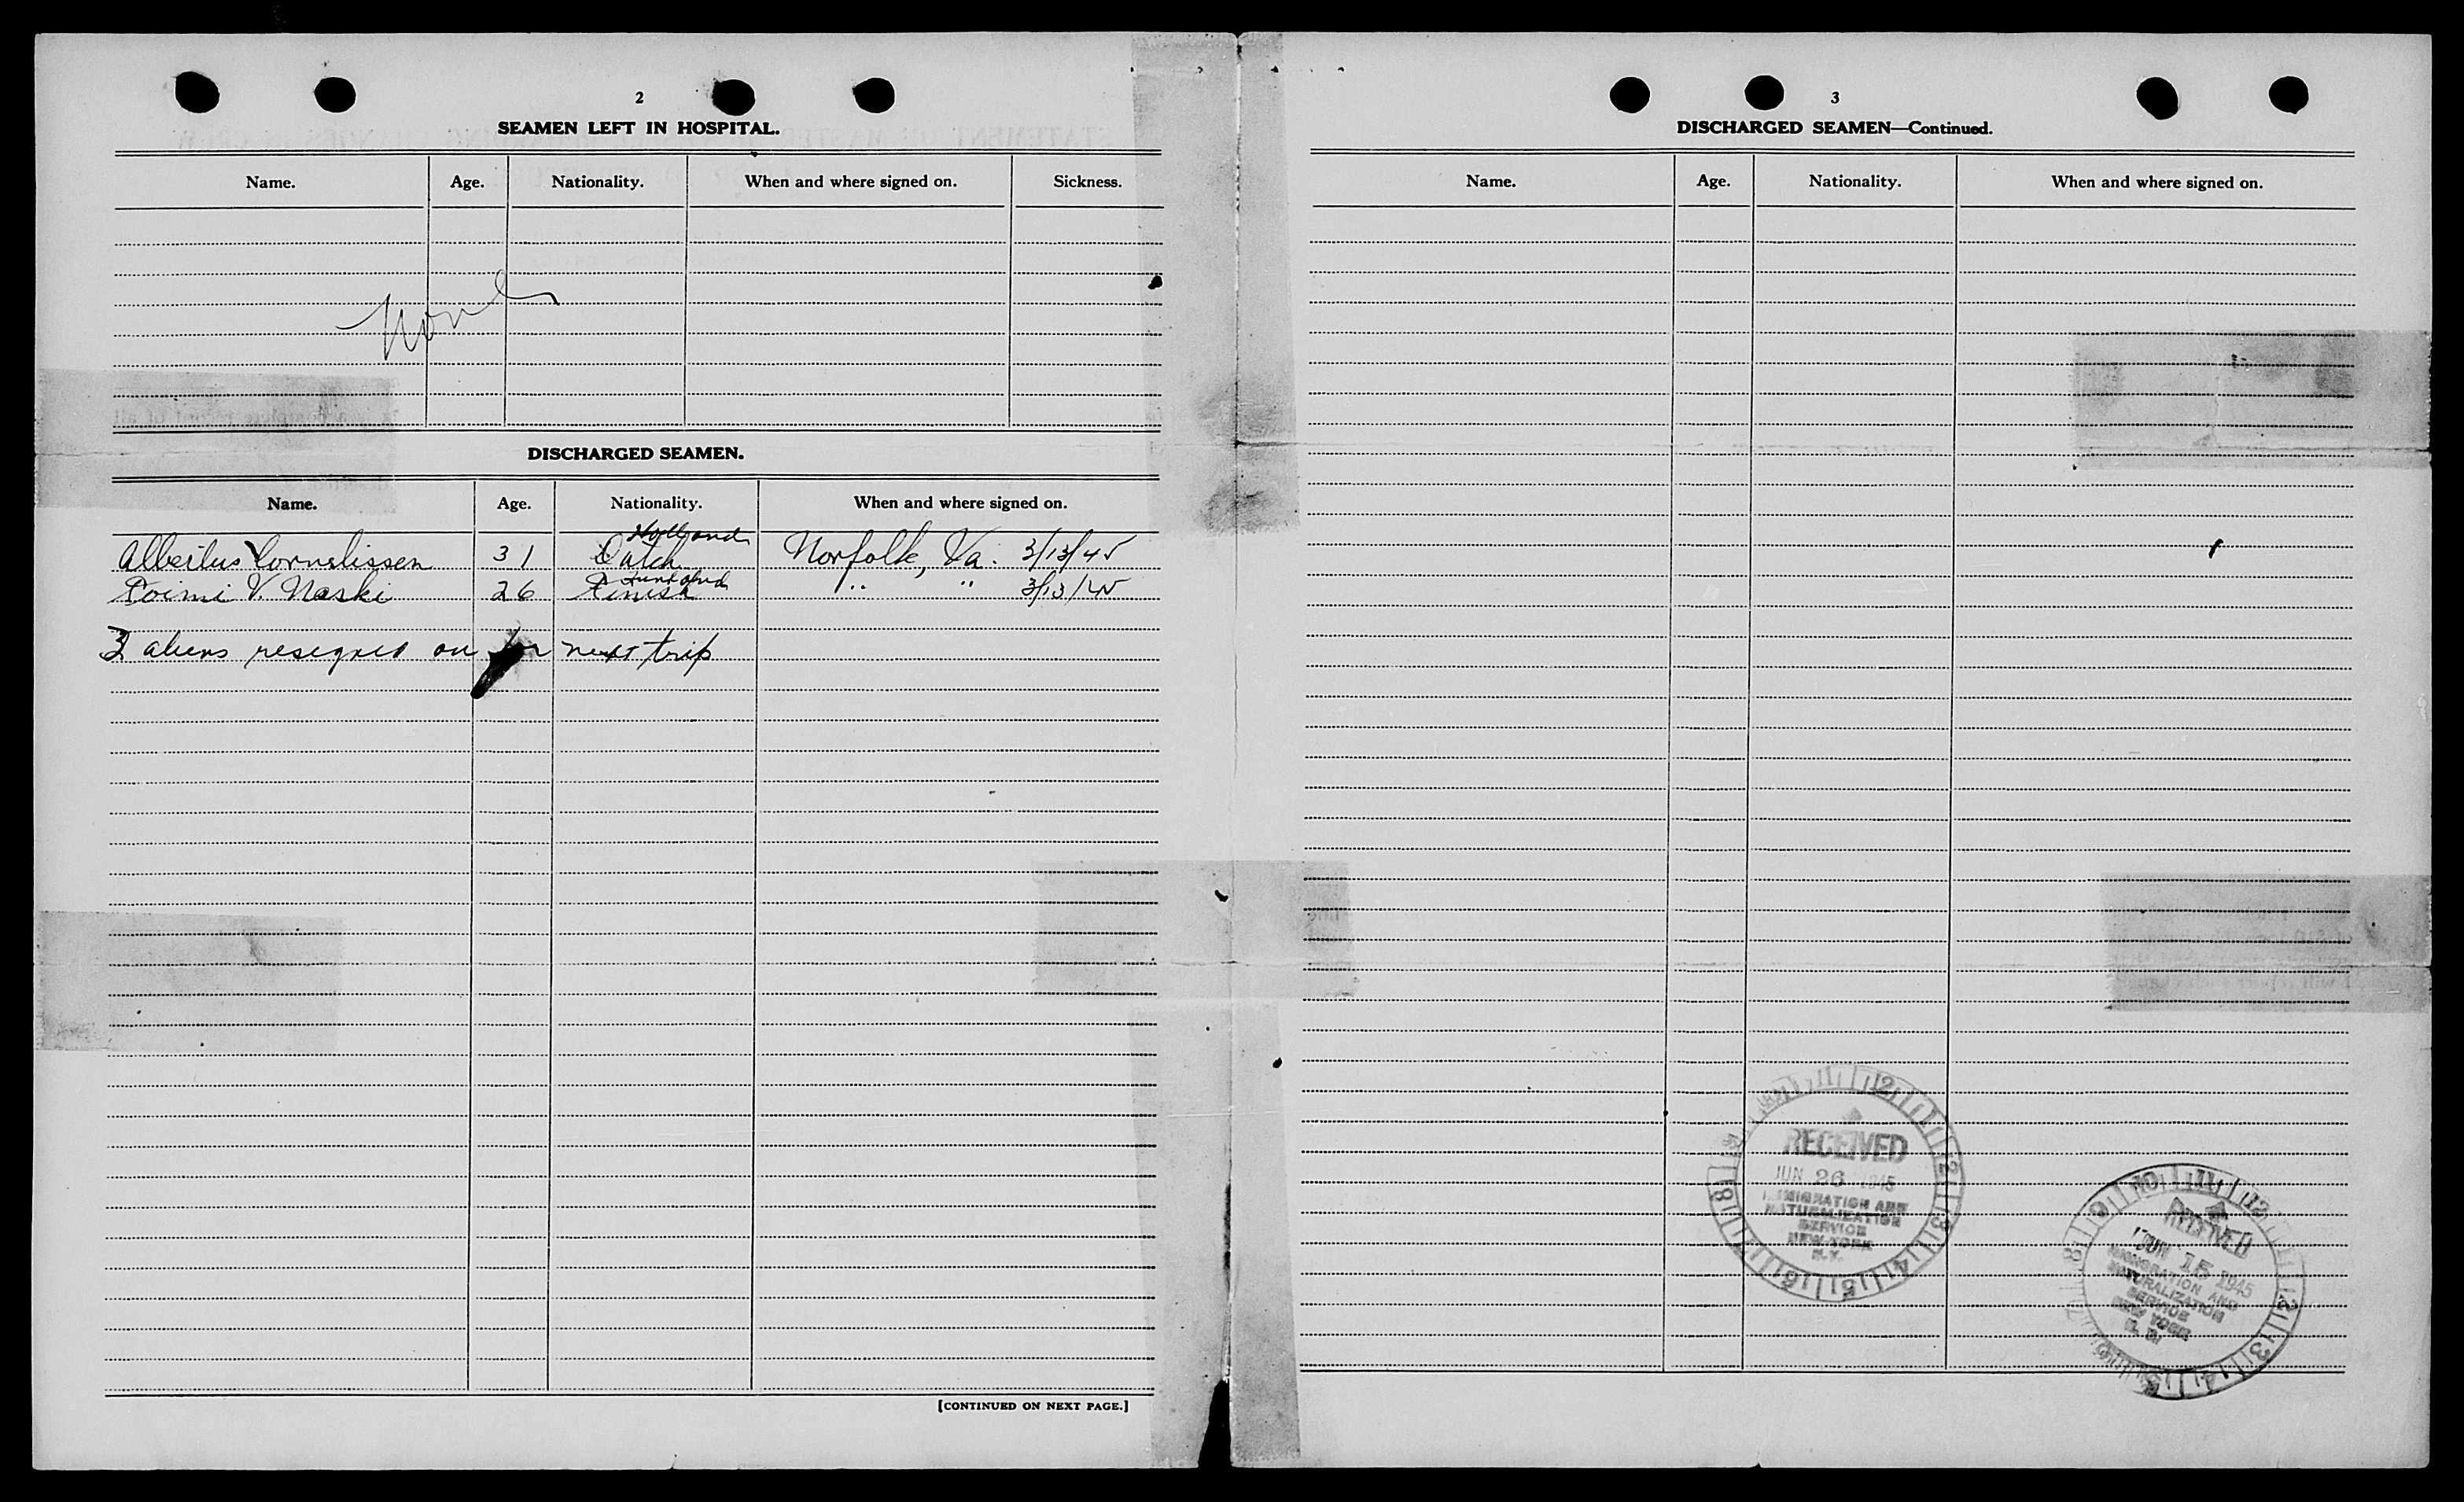 2
SEAMEN LEFT IN HOSPITAL.
Name. Age. Nationality. When and where signed on. Sickness.
None
DISCHARGED SEAMEN.
Name. Age. Nationality. When and where signed on.
Holland
Albertus Cornelissen 31 Dutch Norfolk, Va. 3/13/45
Finland
Toimi V. Naski 26 Finish " " 3/13/45
aliens resigned on for next trip
[CONTINUED ON NEXT PAGE.]
3
DISCHARGED SEAMEN—Continued.
Name. Age. Nationality. When and where signed on.
RECEIVED
JUN 26 1945
IMMIGRATION AND
NATURALIZATION
SERVICE
NEW YORK
N.Y.
RECEIVED
JUN 15 1945
IMMIGRATION AND
NATURALIZATION
SERVICE
NEW YORK
N. Y.